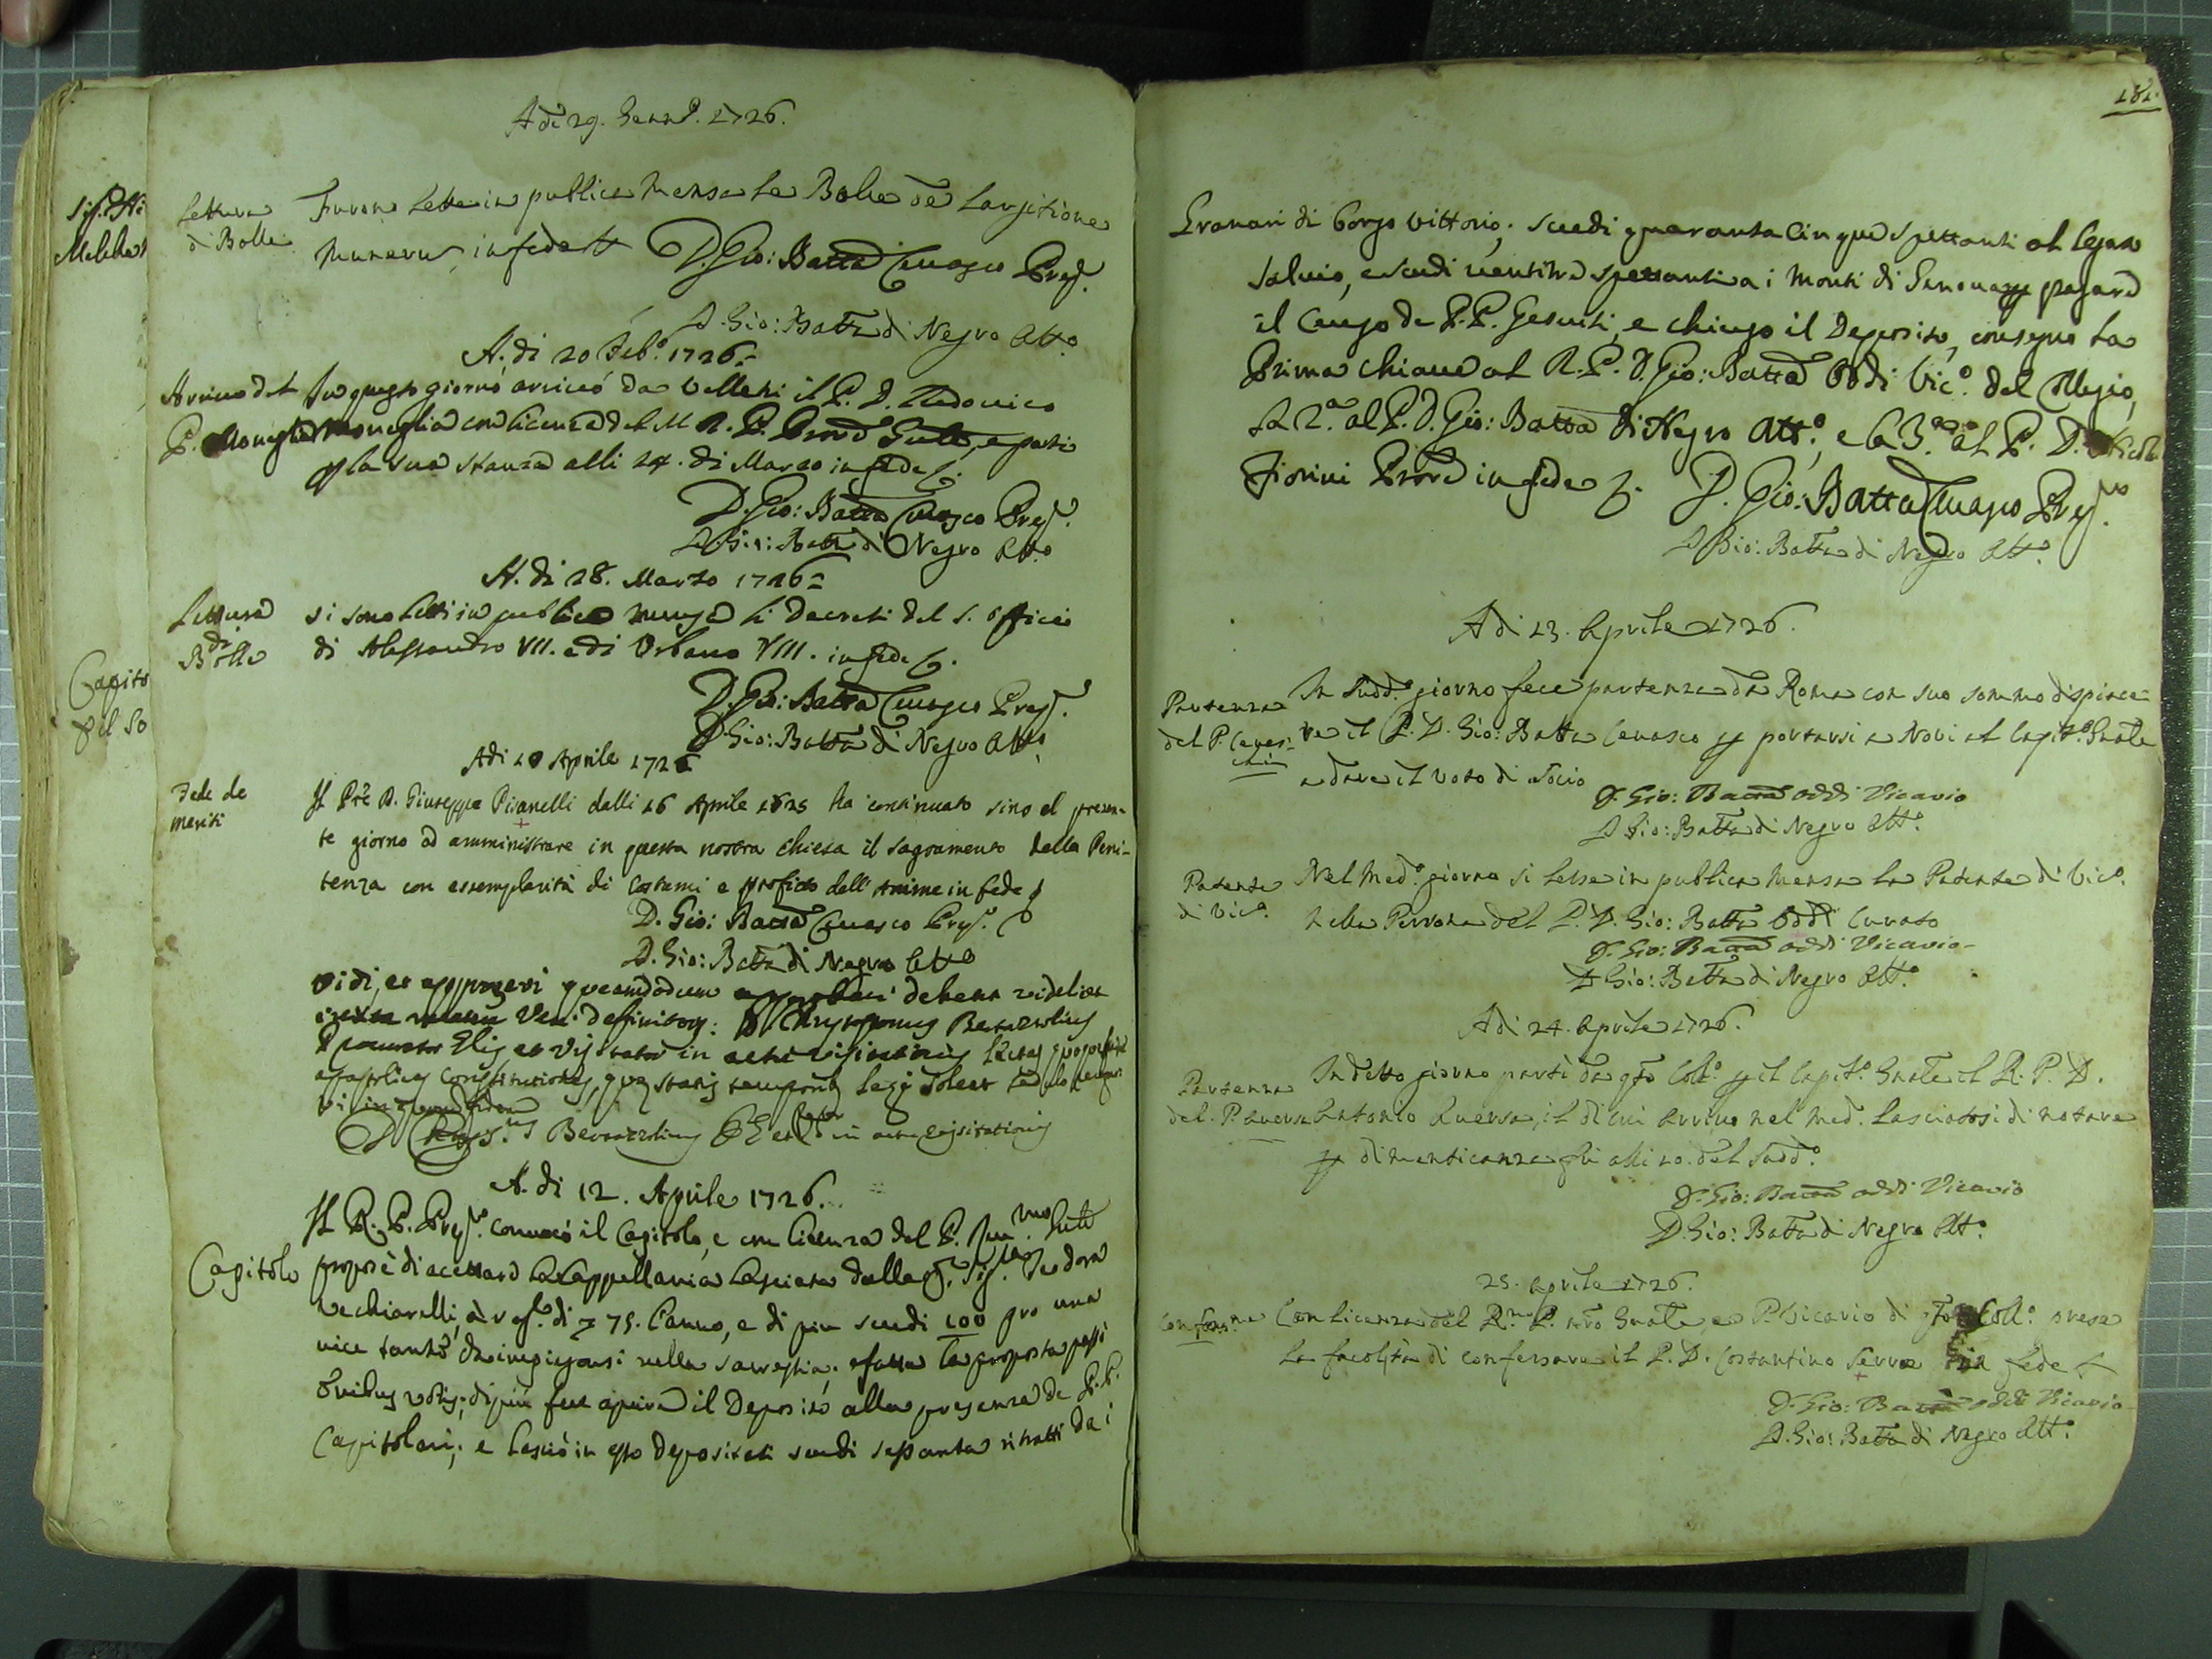 Sig.
Capito
p il So
A di 29. Genn.o 1726.
Lettura
di Bolle
Furon lette in publica Mensa le Bolle de Largitione
Munerum, in fede
D. Gio: Batta Cevasco Prep.to
D. Gio: Batta di Negro Att.o
A. di 20 Feb.o 1726.
Arrivo del
P. Moneglia
In questo giorno arrivò da Velletri il P. D. Lodovico
Moneglia con licenza del M. R. P. Prov.le e partì
p la sua stanza alli 24. di Marzo in fede
D. Gio: Batta Cevasco Prep.to
D. Gio: Batta di Negro Att.o
A. di 28. Marzo 1726
Lettura
di
Bolle
si sono letti in publica mensa li Decreti del S. Officio
di Alessandro VII. e di Urbano VIII. in fede
D. Gio: Batta Cevasco Prep.to
D. Gio: Batta di Negro Att.o
Adi 10 Aprile 1726
Fede de
meriti
Il Pre D. Giuseppe Pisanelli dalli 26 Aprile 1625 ha continuato sino al presen-
te giorno ad amministrare in questa nostra Chiesa il sagramento della Peni-
tenza con essemplarità di Costumi e profitto dell'Anime in fede
D. Gio: Batta Cevasco Prep.to
D. Gio: Batta di Negro Atto
Vidi, et approbavi quemadmodum approbari debere videlicet
Ven. Definitorij:
et Visitator in actu visitationis
apostolicas constitutiones, quę statis temporibus legi solent
in actu visitationis
A. di 12. Aprile 1726.
Capitolo
Il R. P. Prep.to convocò il Capitolo, e con licenza del P. Rev.mo Gnle
propose di accettare la Cappellania lasciata dalla q. Sig.ra Teodora
Vechiarelli, di 75. l'anno, e di più scudi 100 pro una
vice tantum da impiegarsi nella sacrestia; e fatta la proposta passò
omnibus votis; di più fece aprire il Deposito alla presenza de P.P.
Capitolari; e lasciò in esso depositati scudi sessanta ritratti da i
181.
Granari di Borgo Vittorio; scudi quaranta cinque spettanti al legato
Salvio, e scudi ventitre spettanti a i Monti di Genova p pagare
il Censo de P.P. Gesuiti, e chiuso il Deposito, consegnò la
Prima chiave al R. P. D. Gio: Batta Oddi Vic.o del Collegio,
la 2.a al P. D. Gio: Batta di Negro Att.o, e la 3.a al P. D.
Fiorini Prov.le in fede
D. Gio: Batta Cevasco Prep.to
D Gio: Batta di Negro Att.o
A di 13. Aprile 1726.
Partenza
del P. Cevas-
co
In sudd.o giorno fece partenza da Roma con suo sommo dispiace-
re il P. D. Gio: Batta Cevasco p portarsi a Novi al Capit.o Gnale
a dare il voto di Socio
D. Gio: Batta Oddi Vicario
D Gio: Batta di Negro Att.o
Patente
di Vic.o
Nel med.o giorno si lesse in publica Mensa la Patente di Vic.o
nella Persona del P. D. Gio: Batta Oddi Curato
D. Gio: Batta Oddi Vicario
D Gio: Batta di Negro Att.o
A di 24. Aprile 1726.
Partenza
del P. Aversa
In detto giorno partì da qto Coll.o p il Capit.o Gnale il R. P. D.
Antonio Aversa, il di cui arrivo nel med. lasciatosi di notare
p dimenticanza fù alli 20. del sudd.o
D. Gio: Batta Oddi Vicario
D. Gio: Batta di Negro Att.o
25. Aprile 1726.
Confess.ne
Con licenza del R.mo P. nro Gnale, e P. Vicario di qto Coll.o prese
la facoltà di confessare il P. D. Costantino Serra in fede
D. Gio: Batta Oddi Vicario
D. Gio: Batta di Negro Att.o